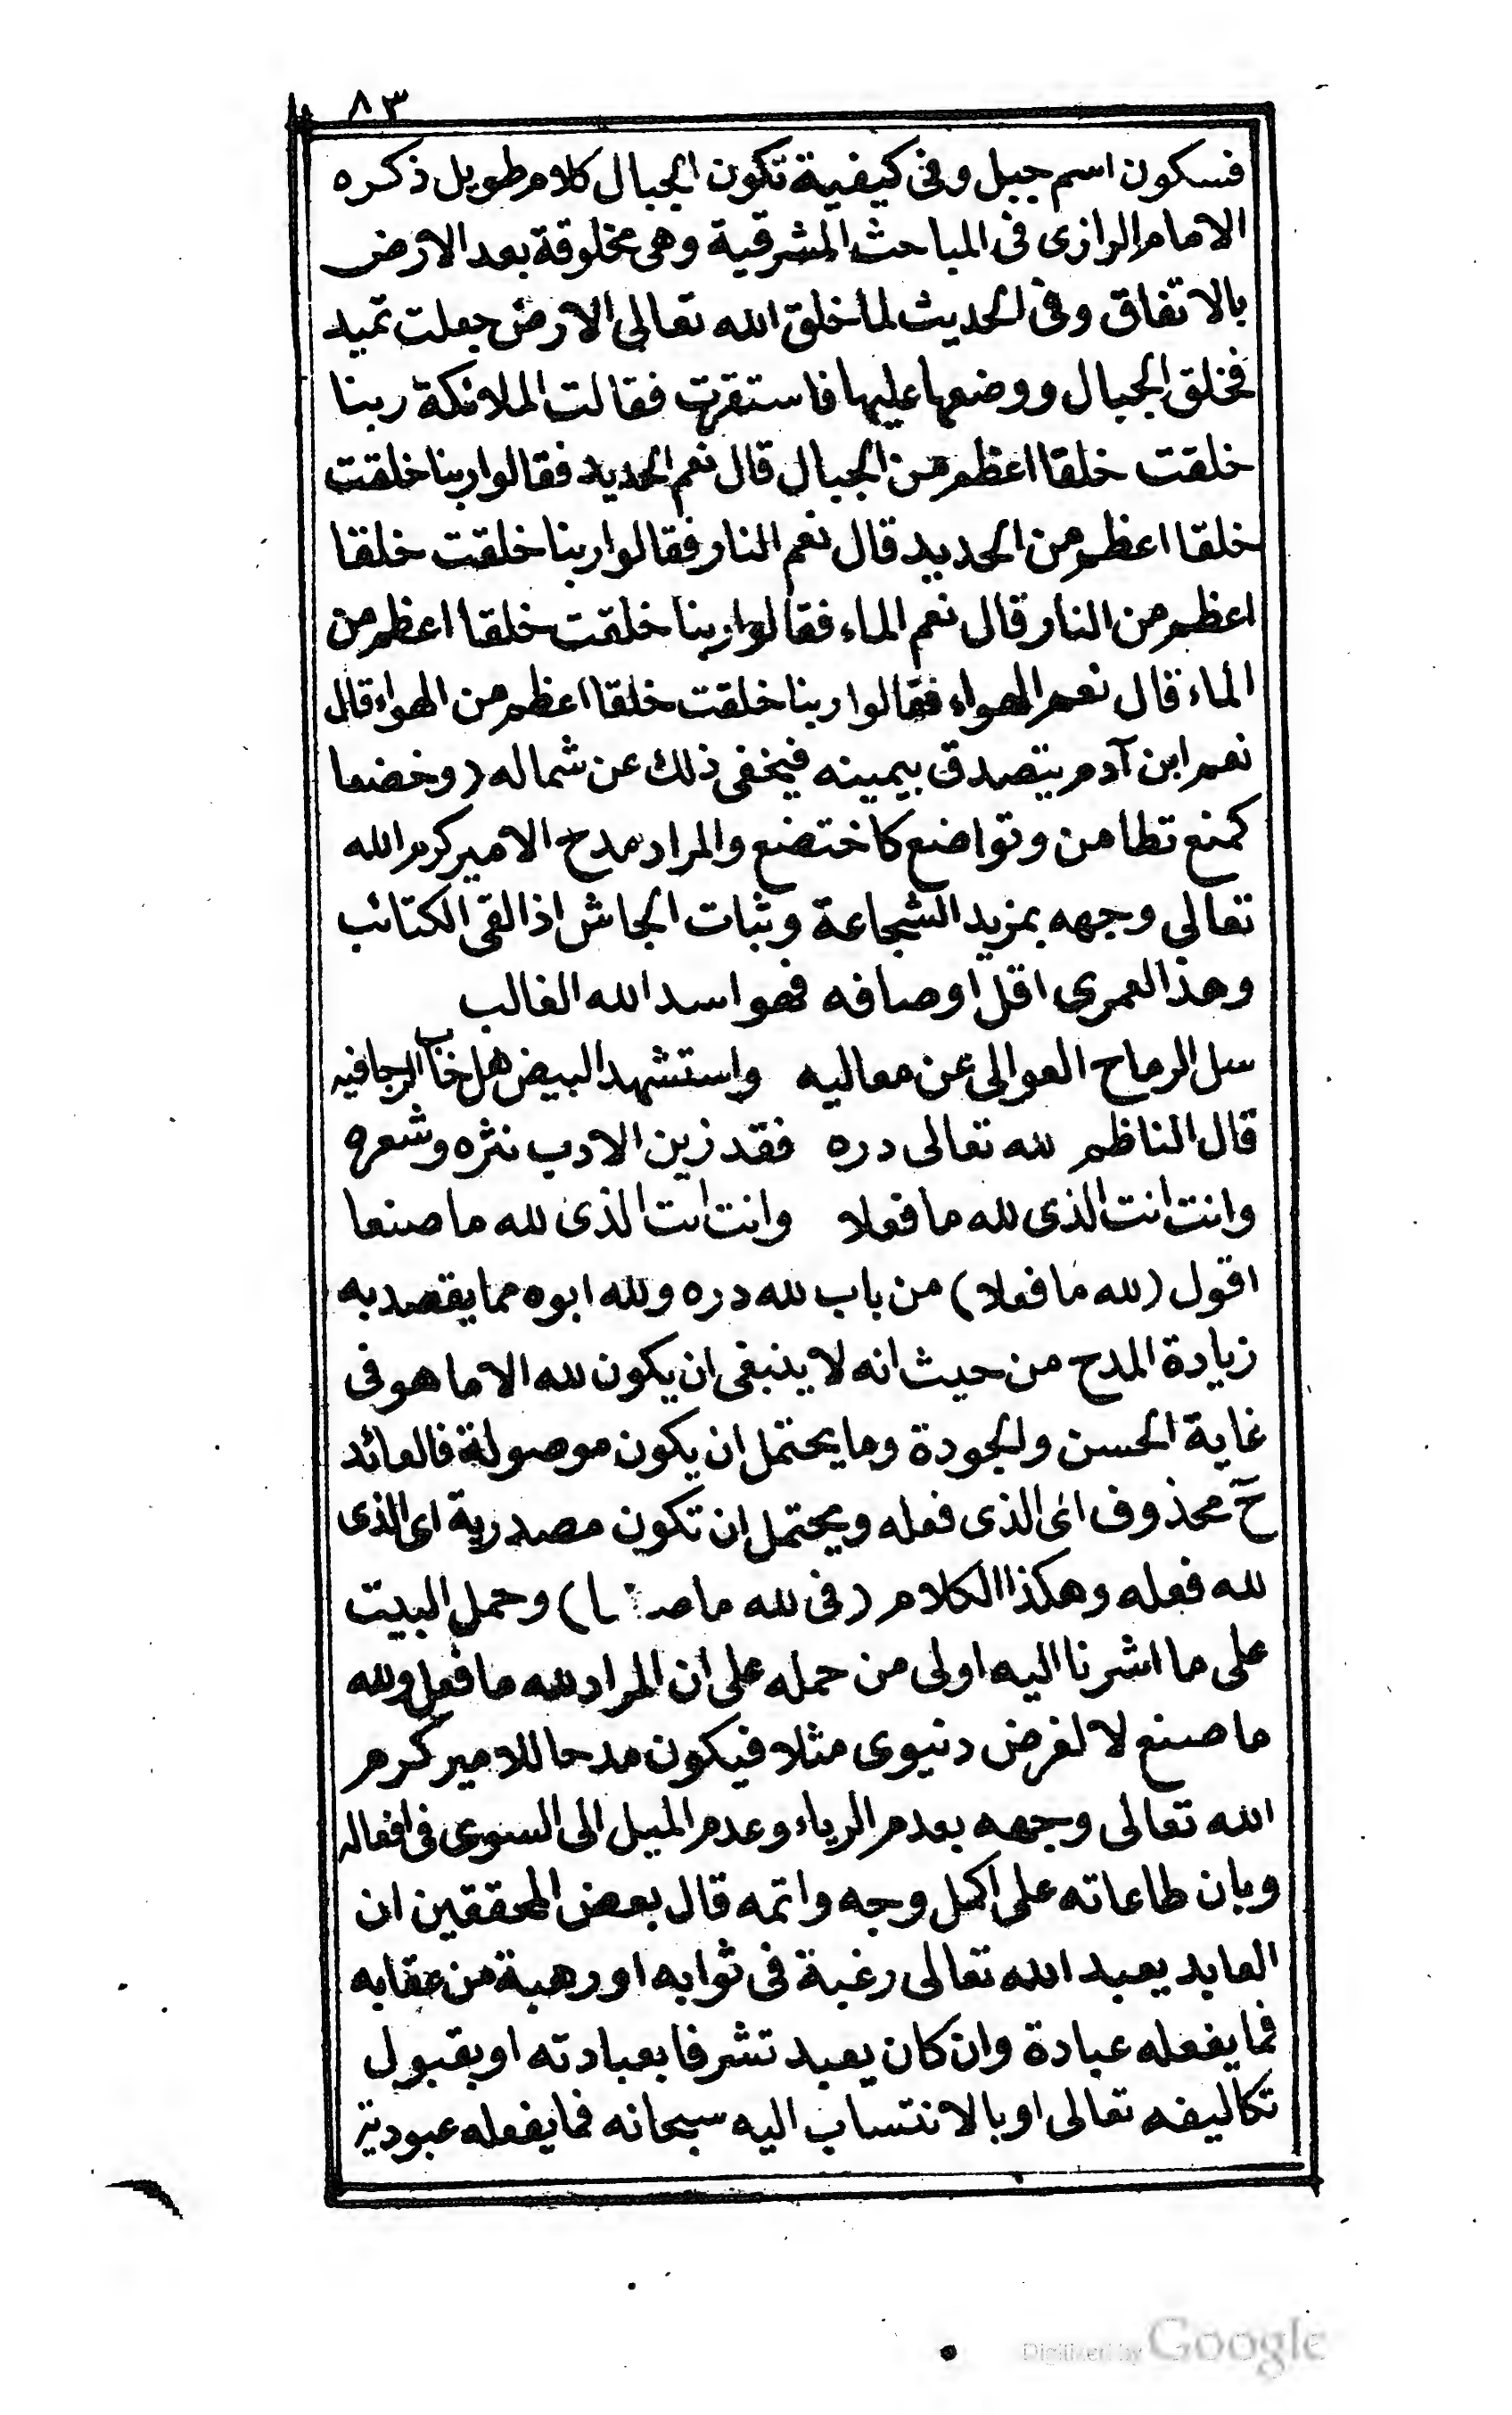 ٨٣
فسكون اسم جبل وفى كيفية تكون الجبال كلام طويل ذكره
الامام الرازى فى المباحث المشرقية وهى مخلوقة بعد الارض
بالاتفاق وفى الحديث لما خلق الله تعالى الارض جعلت تميد
فخلق الجبال ووضعها عليها فاستقرت فقالت الملائكة ربنا
خلقت خلقا اعظم من الجبال قال نعم الحديد فقالوا ربنا خلقت
خلقا اعظم من الحديد قال نعم النار فقالوا ربنا خلقت خلقا
اعظم من النار قال نعم الماء فقالوا ربنا خلقت خلقا اعظم من
الماء قال نعم الهواء فقالوا ربنا خلقت خلقا اعظم من الهواء قال
نعم ابن آدم يتصدق بيمينه فيخفى ذلك عن شماله (وخضعا
كمنع تطامن وتواضع كاختضع والمراد مدح الامير كرم الله
تعالى وجهه بمزيد الشجاعة وثبات الجاش اذا لقى الكتائب
وهذا لعمرى اقل اوصافه فهو اسد الله الغالب
سل الرماح العوالى عن معاليه واستشهد البيض هل خاب الرجا فيه
قال الناظم لله تعالى دره فقد زين الادب نثره وشعره
وانت انت الذى لله ما فعلا وانت انت الذى لله ما صنعا
اقول (لله ما فعلا) من باب لله دره ولله ابوه مما يقصد به
زيادة المدح من حيث انه لا ينبغى ان يكون لله الا ما هو فى
غاية الحسن والجودة وما يحتمل ان يكون موصولة فالعائد
ح محذوف اى الذى فعله ويحتمل ان تكون مصدرية اى الذى
لله فعله وهكذا الكلام (فى لله ما) وحمل البيت
على ما اشرنا اليه اولى من حمله على ان المراد لله ما فعل ولله
ما صنع لا لغرض دنيوى مثلا فيكون مدحا للامير كرم
الله تعالى وجهه بعدم الرياء وعدم الميل الى السوى فى افعاله
وبان طاعاته على اكمل وجه واتمه قال بعض المحققين ان
العابد يعبد الله تعالى رغبة فى ثوابه او رهبة من عقابه
فما يفعله عبادة وان كان يعبد تشرفا بعبادته او بقبول
تكاليفه تعالى او بالانتساب اليه سبحانه فما يفعله عبودية
Digitized by Google